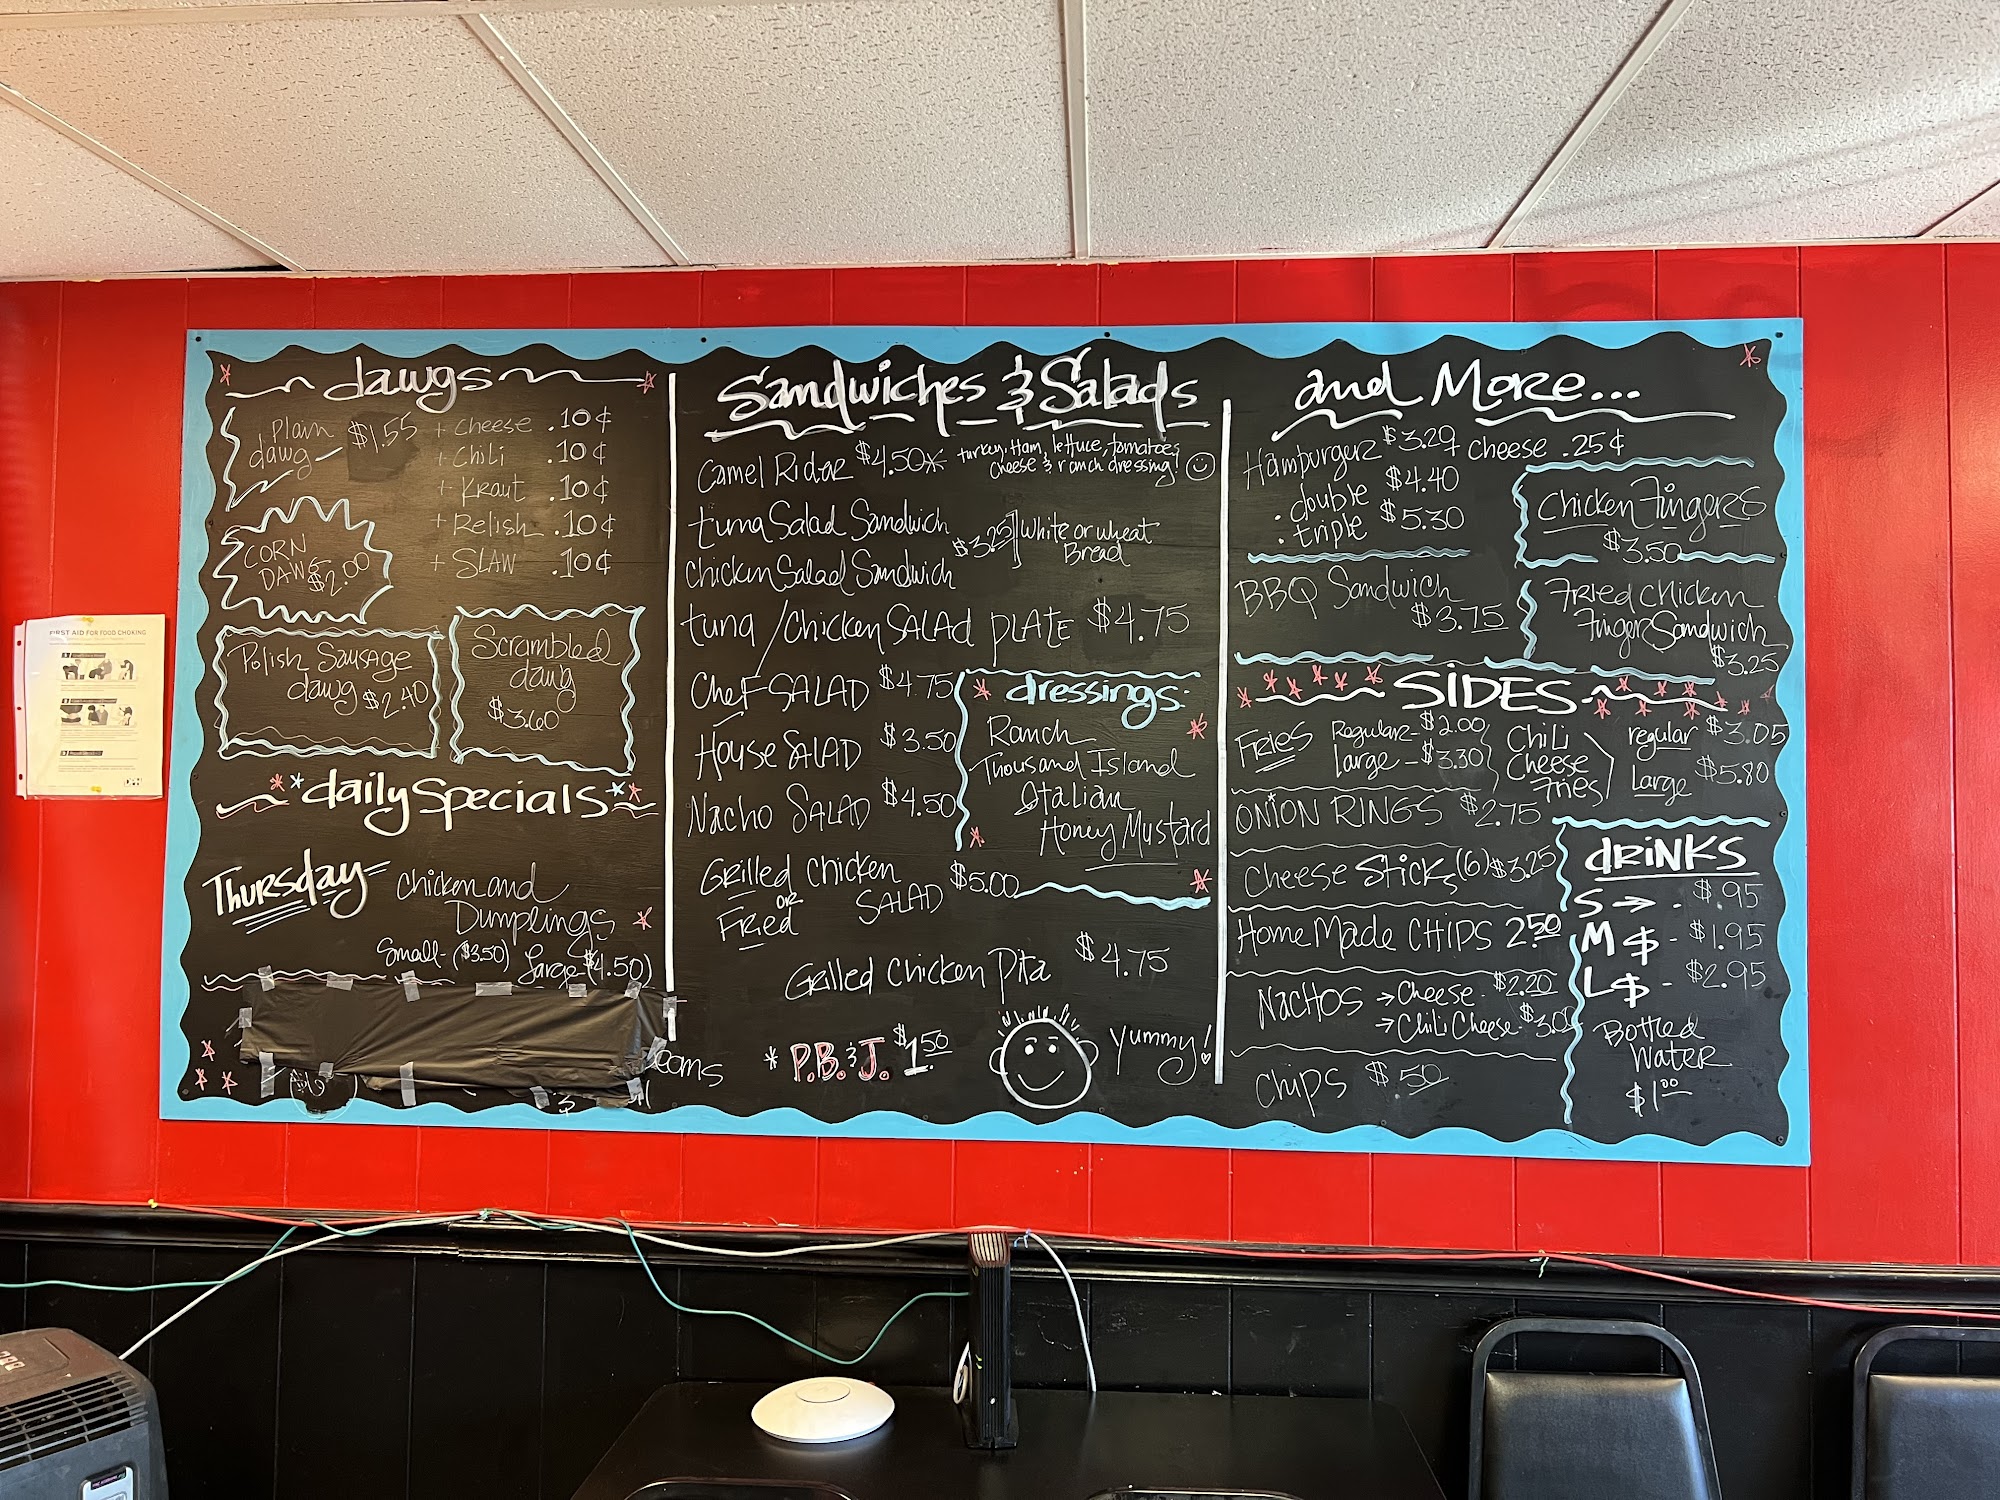 dawgs
Plain
dawg $1.55
+ Cheese .10¢
+ Chili .10¢
+ Kraut .10¢
+ Relish .10¢
+ SLAW .10¢
CORN
DAWG
$2.00
Polish Sausage
dawg $2.40
Scrambled
dawg
$3.60
daily Specials
Thursday
Chicken and
Dumplings
Small - ($3.50) Large - $4.50)
Sandwiches & Salads
Camel Rider $4.50* turkey, Ham, lettuce, tomatoes,
cheese & ranch dressing!
tuna Salad Sandwich
$3.25 White or wheat
Bread
chicken Salad Sandwich
tuna / Chicken SALAd PLATE $4.75
Chef SALAD $4.75
House SALAD $3.50
Nacho SALAD $4.50
Grilled Chicken
or
Fried SALAD $5.00
dressings:
Ranch
Thousand Island
Italian
Honey Mustard
Grilled Chicken Pita $4.75
* P.B. & J. $1.50
Yummy!
and More...
Hamburger $3.29 Cheese .25¢
. double $4.40
. triple $5.30
Chicken Fingers
$3.50
BBQ Sandwich
$3.75
Fried Chicken
Finger Sandwich
$3.25
SIDES
Fries Regular - $2.00
Large - $3.30
Chili
Cheese
Fries
regular $3.05
Large $5.80
ONION RINGS $2.75
Cheese Sticks (6) $3.25
Home Made CHIPS 2.50
NACHOS → Cheese - $2.20
→ Chili Cheese - $3.00
Chips $.50
dRiNKS
S → - $.95
M $ - $1.95
L $ - $2.95
Bottled
Water
$1.00
FIRST AID FOR FOOD CHOKING